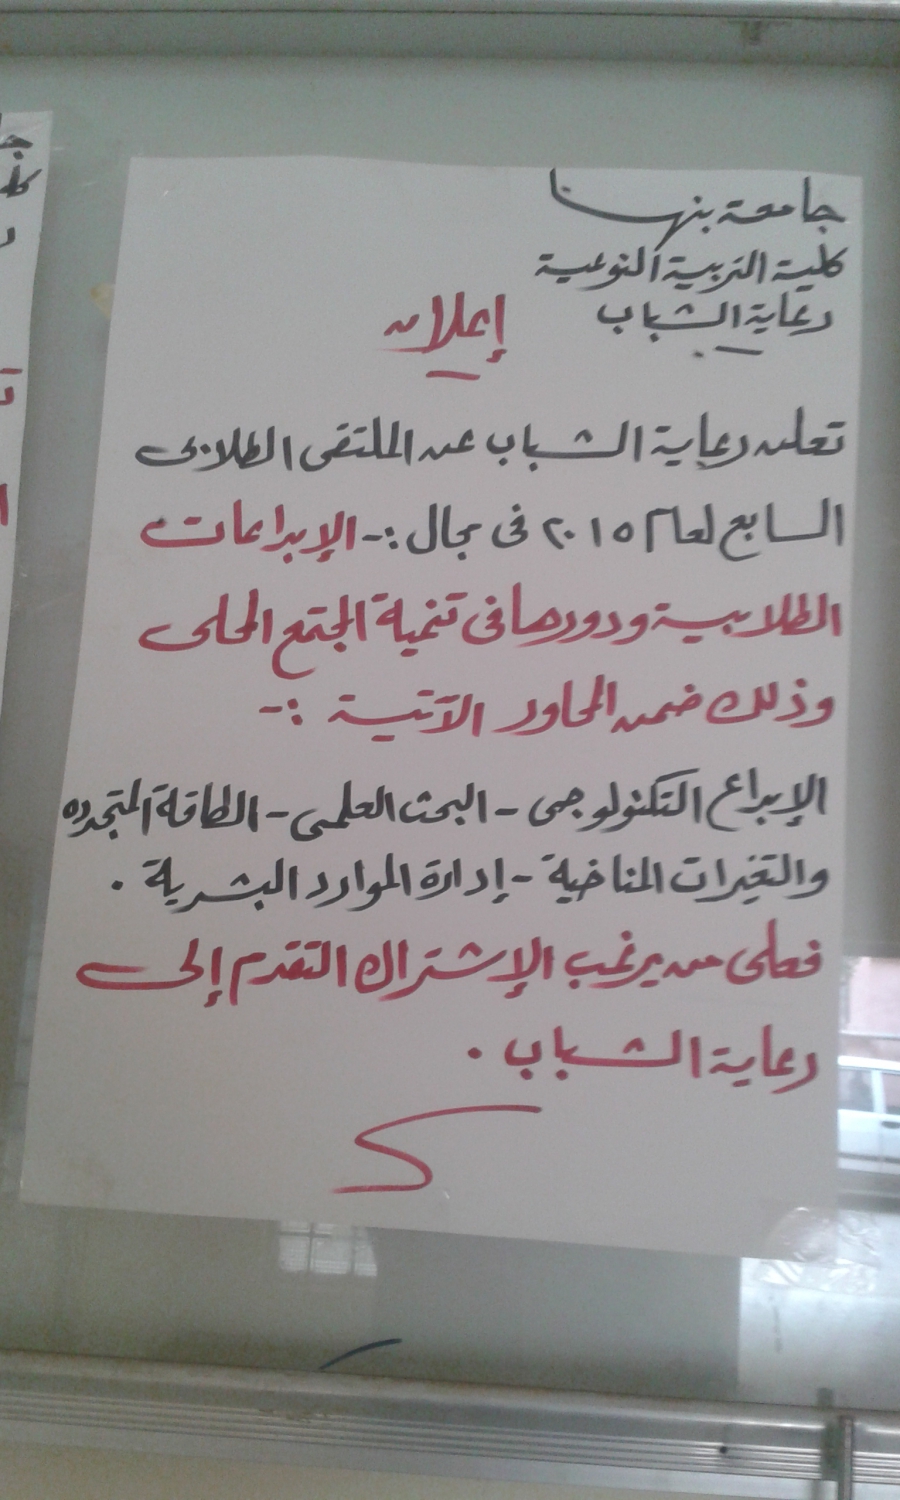 جامعة بنها
كلية التربية النوعية
رعاية الشباب
إعلان
تعلن رعاية الشباب عن الملتقى الطلابى
السابع لعام ٢٠١٥ فى مجال :- الإبداعات
الطلابية ودورها فى تنمية المجتمع المحلى
وذلك ضمن المحاور الآتية :-
الإبداع التكنولوجى - البحث العلمى - الطاقة المتجدده
والتغيرات المناخية - إدارة الموارد البشرية .
فعلى من يرغب الإشتراك التقدم إلى
رعاية الشباب .